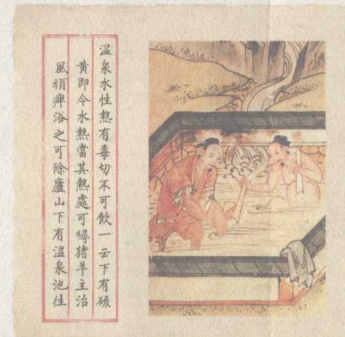 温泉水性熱有毒切不可飲一云下有硫
黄即令水熱當其熱處可燖猪羊主治
風頑痹浴之可除廬山下有温泉池往